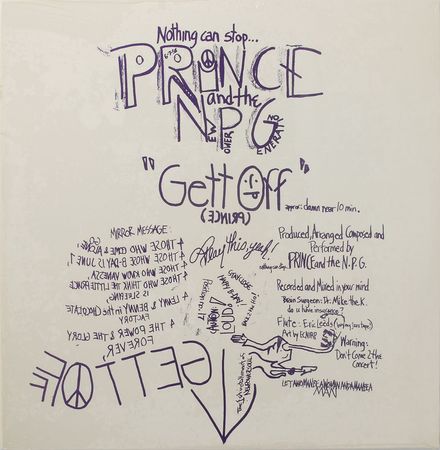 Nothing can stop...
PRINCE
and the
NPG
NEW POWER GENERATION
"Gett Off"
(PRINCE)
approx: damn near 10 min.
MIRROR MESSAGE:
4 THOSE WHO COME & ALONE
4 THOSE WHOSE B-DAY IS JUNE 7
4 THOSE WHO KNOW VANESSA
4 THOSE WHO THINK THE LITTLE PRINCE
IS SLEEPING
LENNY & BENNY in the CHOCOLATE
FACTORY
4 THE POWER & THE GLORY
FOREVER
GETT OFF
Play this, yeah!
HAPPY B-DAY!
CAUTION!
LOUD!
Produced, Arranged, Composed and
Performed by
PRINCE and the N.P.G.
Recorded and Mixed in your mind
Brain Surgeon: Dr. Mike the K.
do u have insurance?
Flute: Eric Leeds
Art by
Warning:
Don't Come 2 the
Concert!